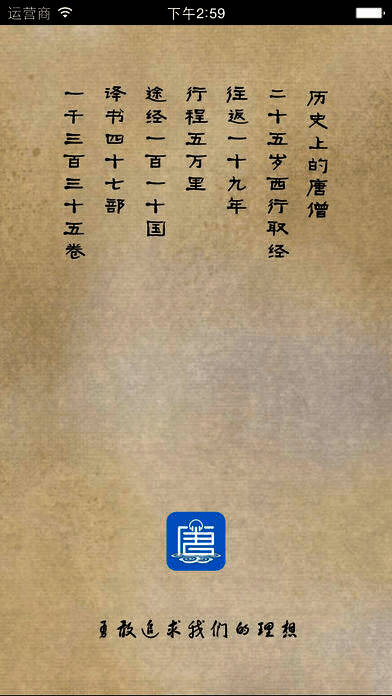 运营商 下午2:59
历史上的唐僧
二十五岁西行取经
往返一十九年
行程五万里
途经一百一十国
译书四十七部
一千三百三十五卷
唐
勇敢追求我们的理想